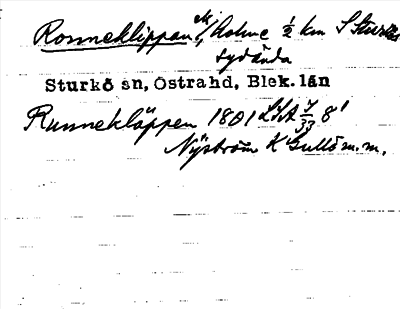 Ronneklippan, ek, holme ½ km S Sturkös
sydända
Sturkö sn, Östrahd, Blek. län
Runnekläppen 1801 LSA 7/33 8¹
Nyström K Gullö m.m.